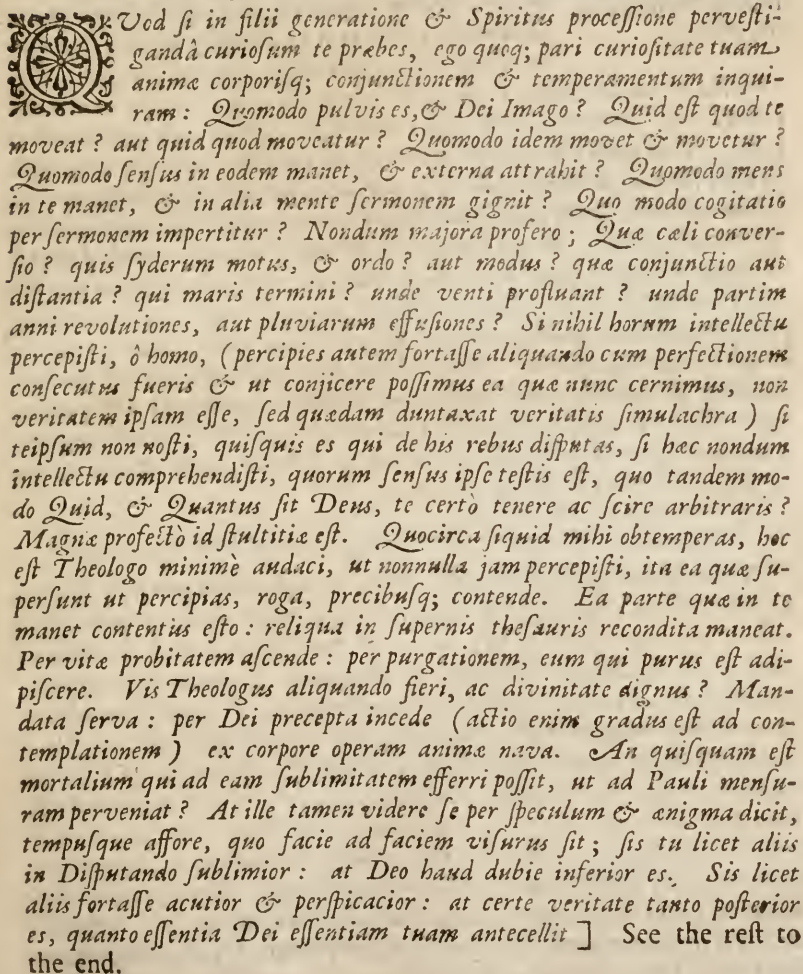 QUod ſi in filii generatione & Spiritus proceſſione perveſti-
gandâ curioſum te præbes, ego quoq; pari curioſitate tuam
animæ corporiſq; conjunctionem & temperamentum inqui-
ram: Quomodo pulvis es, & Dei Imago? Quid eſt quod te
moveat? aut quid quod moveatur? Quomodo idem movet & movetur?
Quomodo ſenſus in eodem manet, & externa attrahit? Quomodo mens
in te manet, & in alia mente ſermonem gignit? Quo modo cogitatio
per ſermonem impertitur? Nondum majora profero; Quæ cæli conver-
ſio? quis ſyderum motus, & ordo? aut modus? quæ conjunctio aut
diſtantia? qui maris termini? unde venti profluant? unde partim
anni revolutiones, aut pluviarum effuſiones? Si nihil horum intellectu
percepiſti, ô homo, (percipies autem fortaſſe aliquando cum perfectionem
conſecutus fueris & ut conjicere poſſimus ea quæ nunc cernimus, non
veritatem ipſam eſſe, ſed quædam duntaxat veritatis ſimulachra) ſi
teipſum non noſti, quiſquis es qui de his rebus diſputas, ſi hæc nondum
intellectu comprehendiſti, quorum ſenſus ipſe teſtis eſt, quo tandem mo-
do Quid, & Quantus ſit Deus, te certò tenere ac ſcire arbitraris?
Magnæ profectò id ſtultitiæ eſt. Quocirca ſiquid mihi obtemperas, hoc
eſt Theologo minimè audaci, ut nonnulla jam percepiſti, ita ea quæ ſu-
perſunt ut percipias, roga, precibuſq; contende. Ea parte quæ in te
manet contentus eſto: reliqua in ſupernis theſauris recondita maneat.
Per vitæ probitatem aſcende: per purgationem, eum qui purus eſt adi-
piſcere. Vis Theologus aliquando fieri, ac divinitate dignus? Man-
data ſerva: per Dei precepta incede (actio enim gradus eſt ad con-
templationem) ex corpore operam animæ nava. An quiſquam eſt
mortalium qui ad eam ſublimitatem efferri poſſit, ut ad Pauli menſu-
ram perveniat? At ille tamen videre ſe per ſpeculum & ænigma dicit,
tempuſque affore, quo facie ad faciem viſurus ſit; ſis tu licet aliis
in Diſputando ſublimior: at Deo haud dubie inferior es. Sis licet
aliis fortaſſe acutior & perſpicacior: at certe veritate tanto poſterior
es, quanto eſſentia Dei eſſentiam tuam antecellit] See the reſt to
the end.